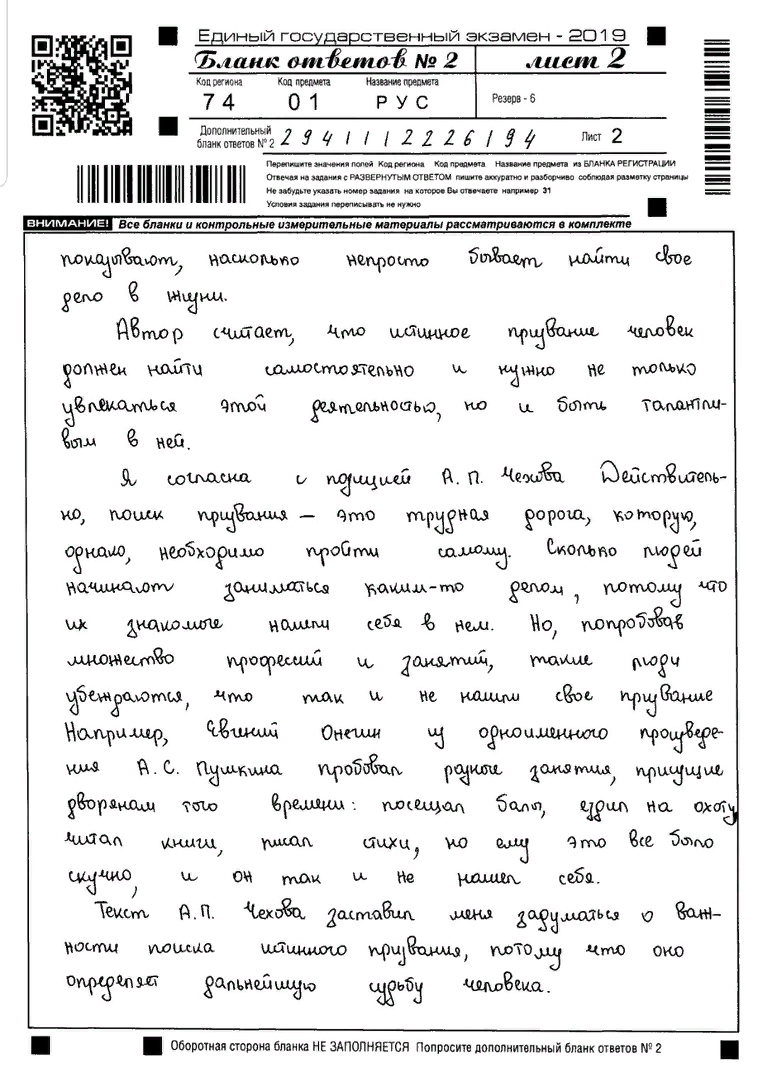 Единый государственный экзамен - 2019
Бланк ответов № 2 лист 2
Код региона Код предмета Название предмета
74 01 РУС Резерв - 6
Дополнительный
бланк ответов № 2 2941112226194 Лист 2
Перепишите значения полей Код региона Код предмета Название предмета из БЛАНКА РЕГИСТРАЦИИ
Отвечая на задания с РАЗВЕРНУТЫМ ОТВЕТОМ пишите аккуратно и разборчиво соблюдая разметку страницы
Не забудьте указать номер задания на которое Вы отвечаете например 31
Условия задания переписывать не нужно
ВНИМАНИЕ! Все бланки и контрольные измерительные материалы рассматриваются в комплекте
показывают, насколько непросто бывает найти свое
дело в жизни.
Автор считает, что истинное призвание человек
должен найти самостоятельно и нужно не только
увлекаться этой деятельностью, но и быть талантли-
вым в ней.
Я согласна с позицией А.П. Чехова Действитель-
но, поиск призвания — это трудная дорога, которую,
однако, необходимо пройти самому. Сколько людей
начинают заниматься каким-то делом, потому что
их знакомые нашли себя в нем. Но, попробовав
множество профессий и занятий, такие люди
убеждаются, что так и не нашли свое призвание
Например, Евгений Онегин из одноименного произведе-
ния А.С. Пушкина пробовал разные занятия, присущие
дворянам того времени: посещал балы, ездил на охоту
читал книги, писал стихи, но ему это все было
скучно, и он так и не нашел себя.
Текст А.П. Чехова заставил меня задуматься о важ-
ности поиска истинного призвания, потому что оно
определяет дальнейшую судьбу человека.
Оборотная сторона бланка НЕ ЗАПОЛНЯЕТСЯ Попросите дополнительный бланк ответов № 2